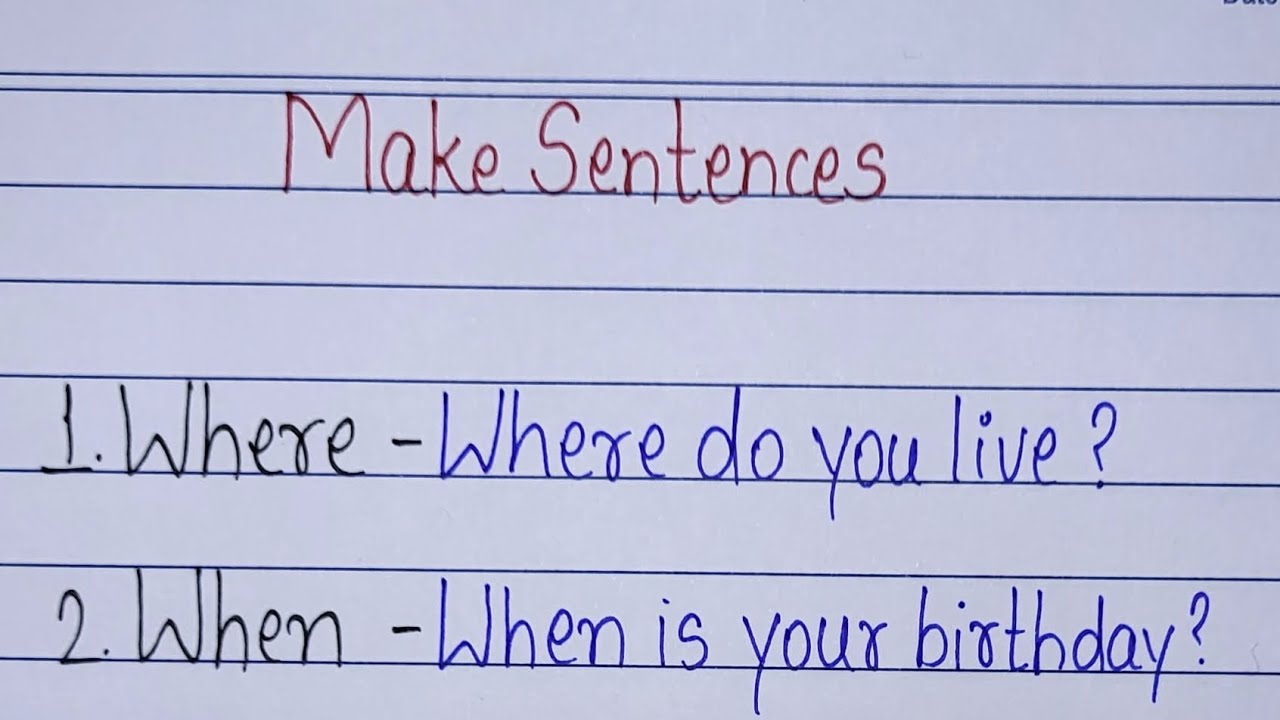 Make Sentences
1. Where - Where do you live?
2. When - When is your birthday?